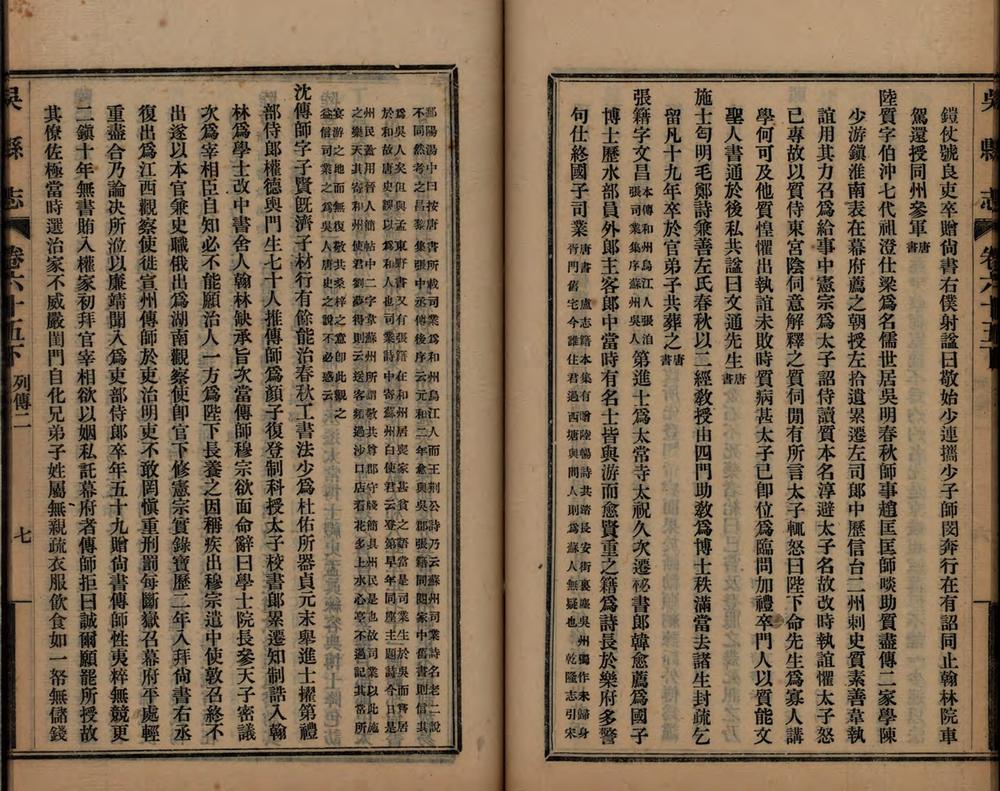 吳縣志 卷六十五下
鎧仗號良吏卒贈尙書右僕射諡曰敬始少連攜少子師閔奔行在有詔同止翰林院車
駕還授同州參軍唐書
陸質字伯沖七代祖澄仕梁爲名儒世居吳明春秋師事趙匡匡師啖助質盡傳二家學陳
少游鎭淮南表在幕府薦之朝授左拾遺累遷左司郎中歷信台二州刺史質素善韋執
誼用其力召爲給事中憲宗爲太子詔侍讀質本名淳避太子名故改時執誼懼太子怒
已專故以質侍東宮陰伺意解釋之質伺閒有所言太子輒怒曰陛下命先生爲寡人講
學何可及他質惶懼出執誼未敗時質病甚太子已卽位爲臨問加禮卒門人以質能文
聖人書通於後私共諡曰文通先生唐書
施士匄明毛鄭詩兼善左氏春秋以二經敎授由四門助敎爲博士秩滿當去諸生封疏乞
留凡十九年卒於官弟子共葬之唐書
張籍字文昌本傳和州烏江人張洎張司業集序蘇州吳人第進士爲太常寺太祝久次遷祕書郎韓愈薦爲國子
博士歷水部員外郎主客郎中當時有名士皆與游而愈賢重之籍爲詩長於樂府多警
句仕終國子司業唐書 盧志籍本集有贈陸暢詩共踏長安街裏塵吳州獨作未歸身胥門舊宅今誰住君過西塘與問人則爲蘇人無疑也 乾隆志引宋
鄱陽湯中曰按唐書所載司業爲和州烏江人而王荆公詩乃云蘇州司業詩名老二說
不同然考之昌黎集張中丞傳後序云元和二年愈與吳郡張籍閱家中舊書則信其
爲吳人矣但與孟東野書又有張籍在和州居喪家甚貧之語當是司業生於吳而嘗居
於和故唐史誤以爲和人也司業時中寄蘇州白使君云登第早年同座主題詩今日是
州民蓋用晉人簡帖中二字韋蘇州所謂敬共尊郡守牋簡具州民是也故司業以此施
之樂天其寄和州使君劉夢得則云送客頻過沙口店看花多上水心亭不過記其常所
宴游之地而無復敬共桑梓之意卽此觀之
益信司業之爲吳人唐史之說不必惑云
沈傳師字子賢旣濟子材行有餘能治春秋工書法少爲杜佑所器貞元末舉進士擢第禮
部侍郎權德輿門生七十人推傳師爲顏子復登制科授太子校書郎累遷知制誥入翰
林爲學士改中書舍人翰林缺承旨次當傳師穆宗欲面命辭曰學士院長參天子密議
次爲宰相臣自知必不能願治人一方爲陛下長養之因稱疾出穆宗遣中使敦召終不
出遂以本官兼史職俄出爲湖南觀察使卽官下修憲宗實錄寶歷二年入拜尙書右丞
復出爲江西觀察使徙宣州傳師於吏治明吏不敢罔愼重刑罰每斷獄召幕府平處輕
重盡合乃論决所涖以廉靖聞入爲吏部侍郎卒年五十九贈尙書傳師性夷粹無競更
二鎭十年無書賄入權家初拜官宰相欲以姻私託幕府者傳師拒曰誠爾願罷所授故
其僚佐極當時選治家不威嚴閨門自化兄弟子姓屬無親疏衣服飮食如一帑無儲錢
吳縣志 卷六十五下 列傳二 七